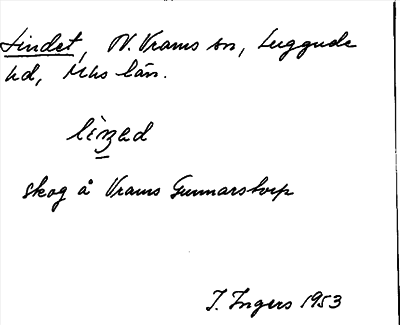 Lindet, N. Vrams sn, Luggude
hd, Mhs län.
skog å Vrams Gunnarstorp
I. Ingers 1953